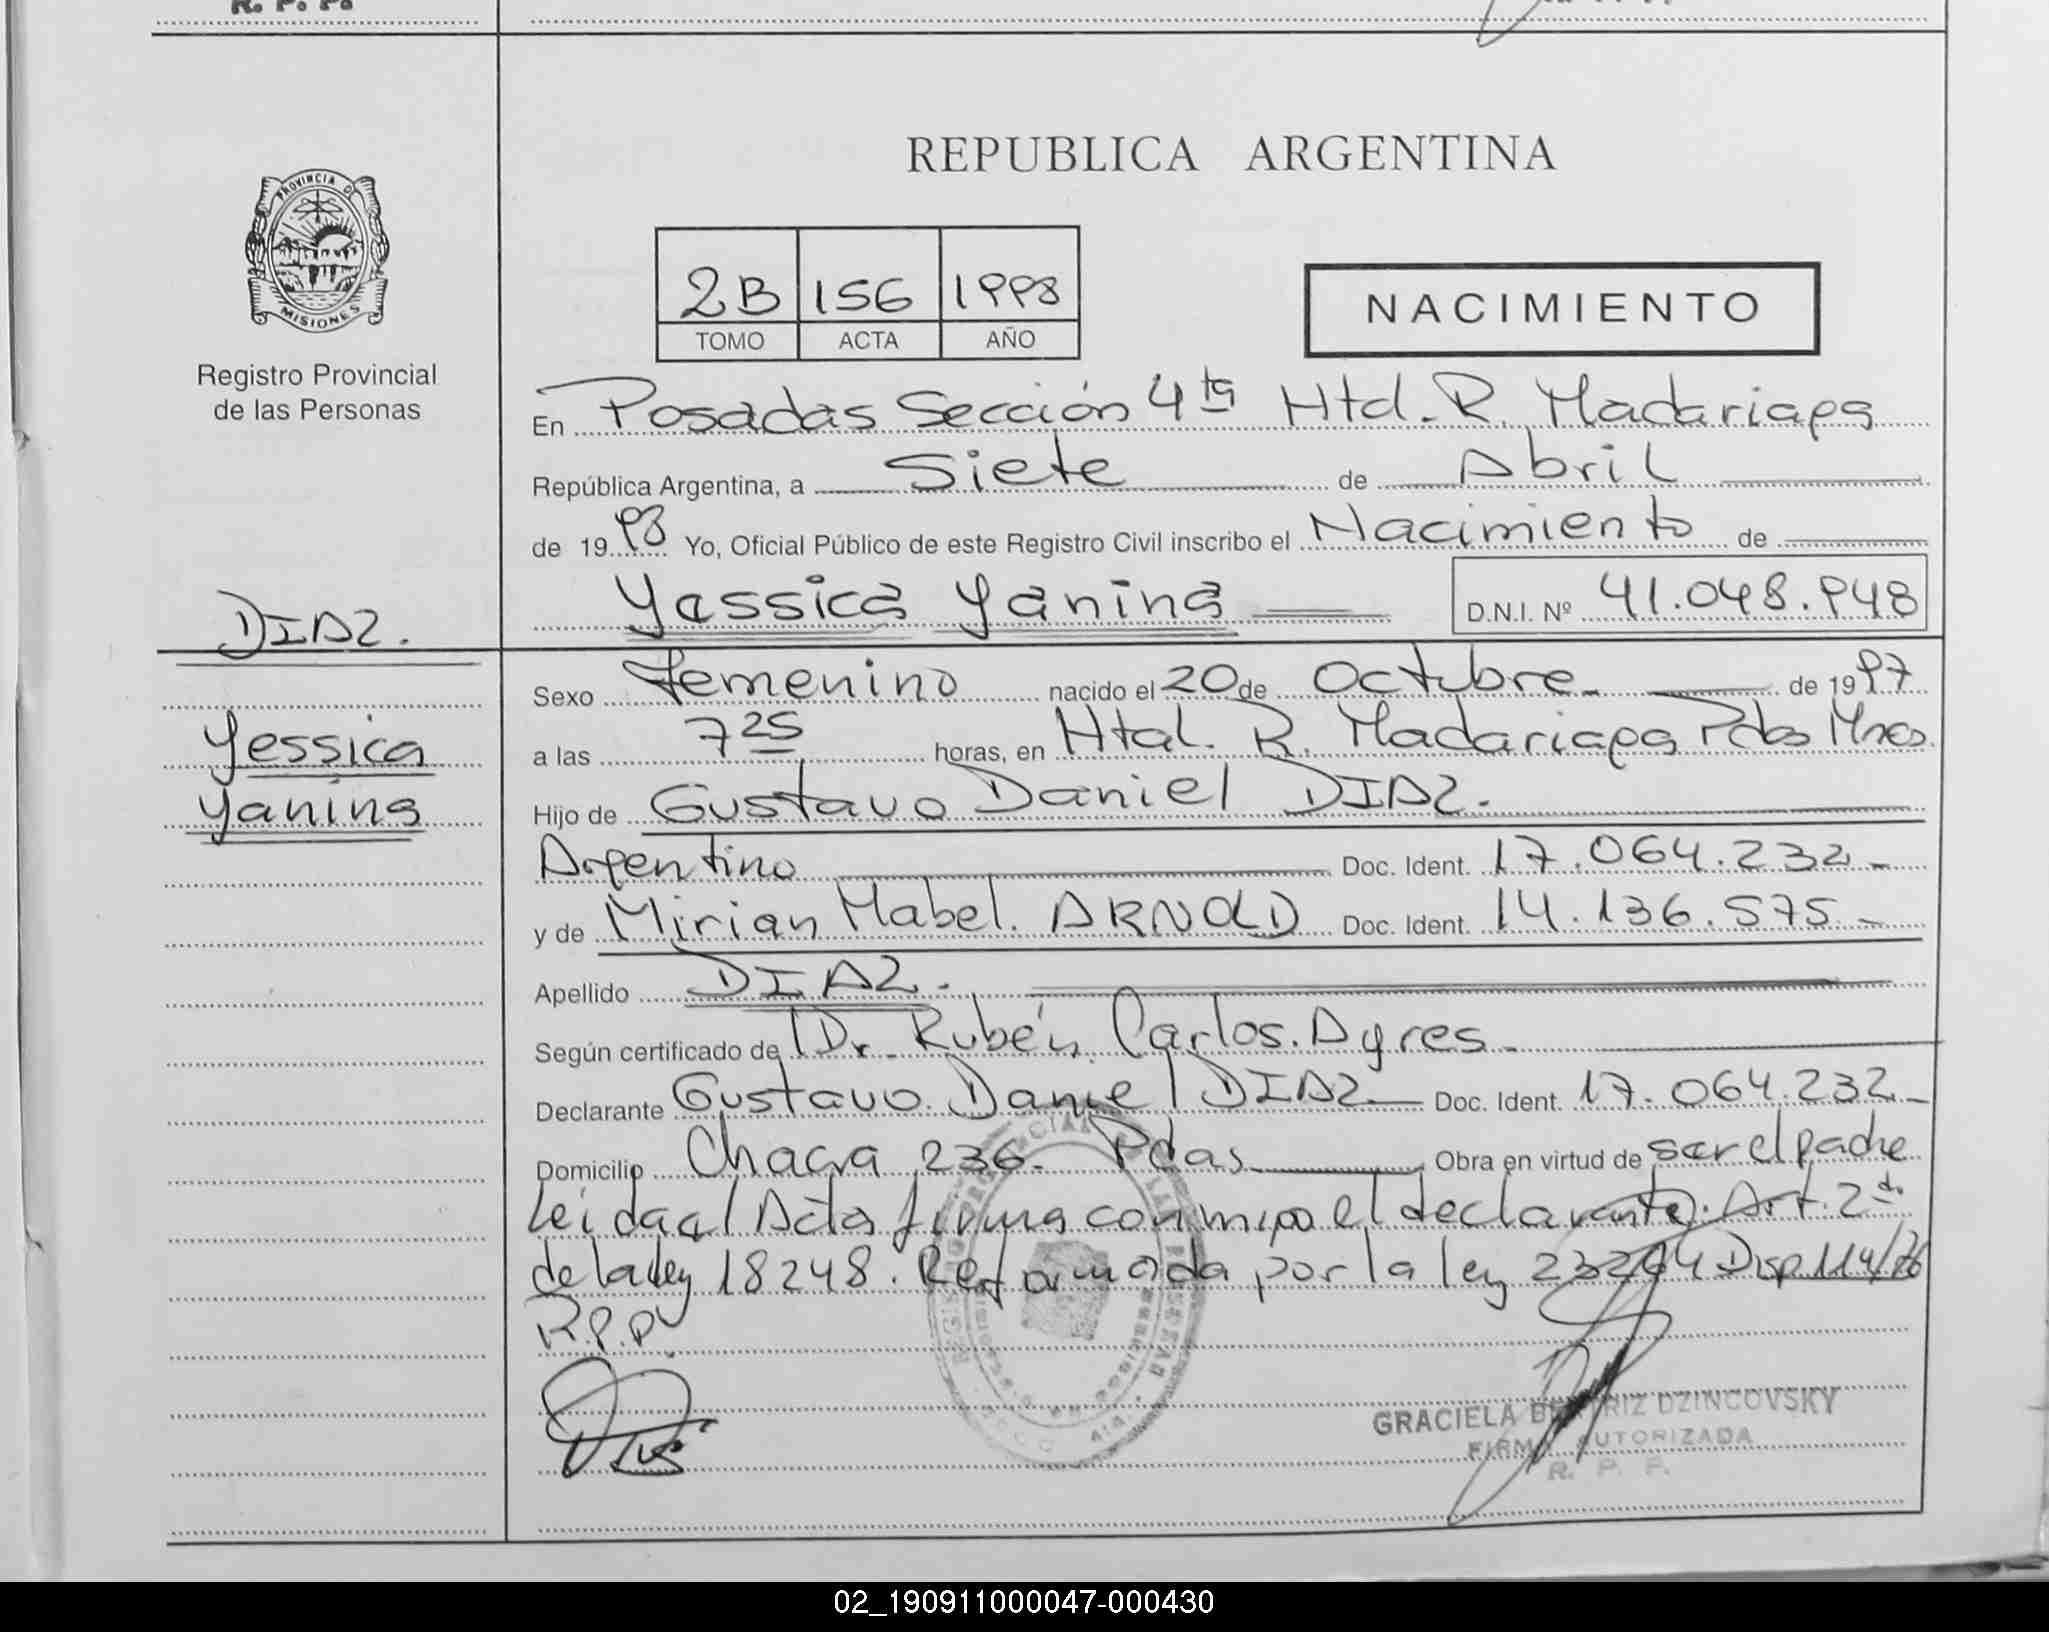 R. P. P.
REPUBLICA ARGENTINA
PROVINCIA DE
MISIONES
Registro Provincial
de las Personas
2B 156 1998
TOMO ACTA AÑO
NACIMIENTO
En Posadas Sección 4ta Htal. R. Madariaga
República Argentina, a Siete de Abril
de 1998 Yo, Oficial Público de este Registro Civil inscribo el Nacimiento de
Yessica Yanina D.N.I. Nº 41.048.948
DIAZ.
Yessica
Yanina
Sexo Femenino nacido el 20 de Octubre de 1997
a las 7 25 horas, en Htal. R. Madariaga Pdas Mnes.
Hijo de Gustavo Daniel DIAZ.
Argentino Doc. Ident. 17.064.232
y de Mirian Mabel. ARNOLD Doc. Ident. 14.136.575
Apellido DIAZ.
Según certificado de Dr. Rubén Carlos. Ayres
Declarante Gustavo Daniel DIAZ Doc. Ident. 17.064.232
Domicilio Chacra 236. Pdas Obra en virtud de ser el padre
Leida el Acta firma conmigo el declarante. Art. 2do
de la ley 18248. Reformada por la ley 23264 Disp 114/76
R.P.P.
GRACIELA BEATRIZ DZINCOVSKY
FIRMA AUTORIZADA
R. P. P.
02_190911000047-000430